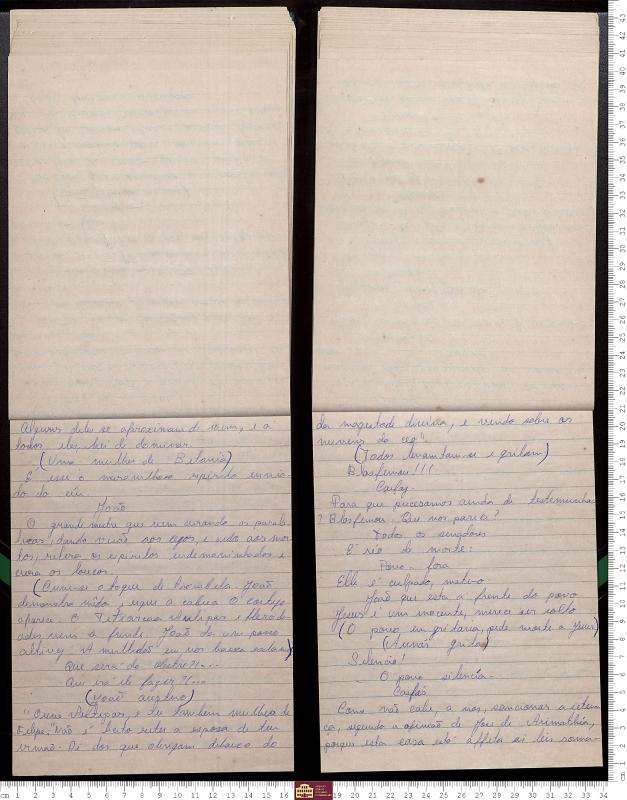 Alguns deles se aproximam de mim, e a
todos eles, hei de dominar.
(Uma mulher de Betania)
E esse o maravilhoso espirito envia-
do do céu.
João
O grande mestre que vem curando os parali-
ticos, dando visão aos cegos, e vida aos mor-
tos, retira os espiritos endemoninhados e
cura os loucos.
(Ouve-se o toque de trombeta. João
demonstra , ergue a cabeça O cortejo
aparece. O Tetrarca Antipas e Hero
ades vem a frente. João da um passo
altivo. A multidão em voz baixa exclama)
Que será do mestre?!...
Que irá ele fazer?!...
(João austero)
"Ouve Antipas, e tu tambem mulher de
Felipe. Não é licito reter a esposa de teu
irmão. Ai dos que abrigam debaixo do
da magestade divina, e vindo sobre as
nuvens do ceo"
(Todos levantam-se e gritam)
Blasfemou!!!
Caifaz
Para que precisamos ainda de testemunhas
? Blasfemou. Que vos parece?
Todos os senadores
E' réo de morte:
Povo - fora
Elle é culpado, matae-o
João que esta a frente do povo
Jesus é um inocente, merece ser solto
(O povo em gritaria, pede morte a Jesus)
(Annás grita)
Silencio!
O povo silencía.
Caifás
Como não cabe, a nós, sancionar a senten
ça, segundo a opinião de José de Arimathéa,
porque esta casa está affeta ás leis roma-
cm 1 2 3 4 5 6 7 8 9 10 11 12 13 14 15 16
19 20 21 22 23 24 25 26 27 28 29 30 31 32 33 34